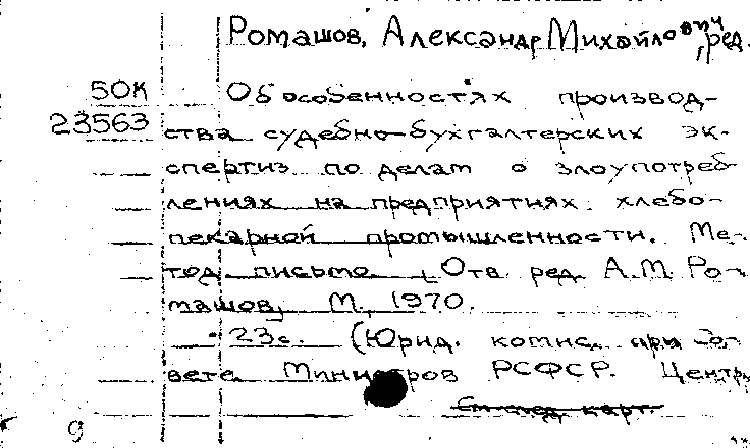 Ромашов, Александр Михайлович, ред.
50К Об особенностях производ-
23563 ства судебно-бухгалтерских эк-
спертиз по делам о злоупотреб-
лениях на предприятиях хлебо-
пекарной промышленности. Ме-
тод. письмо. Отв. ред. А.М. Ро-
машов. М., 1970.
23с. (Юрид. комис. при Со-
вете Министров РСФСР. Центр.
См. след. карт.
g